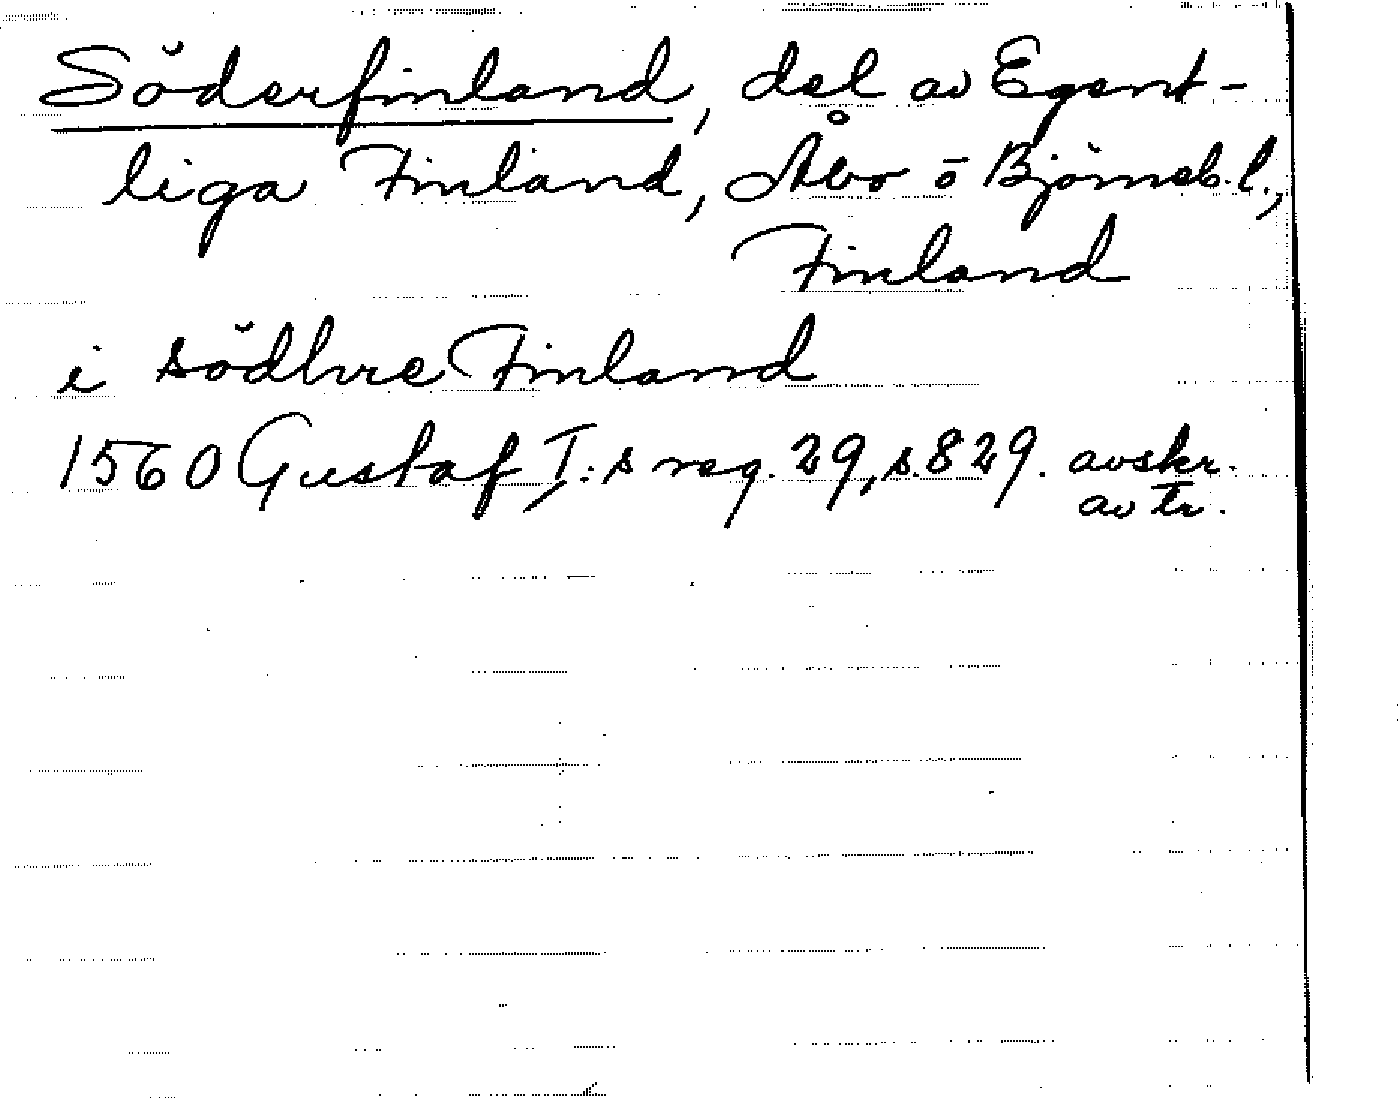 Söderfinland, del av Egent-
liga Finland, Åbo o Björneb. l.,
Finland
i södhre Finland
1560 Gustaf I:s reg. 29, s. 829. avskr.
av tr.